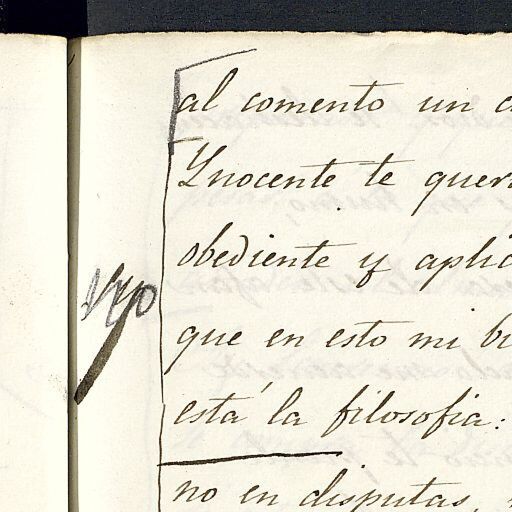 al comento un
Ynocente te
obediente y
que en esto mi
está la filosofia:
no en disputas,